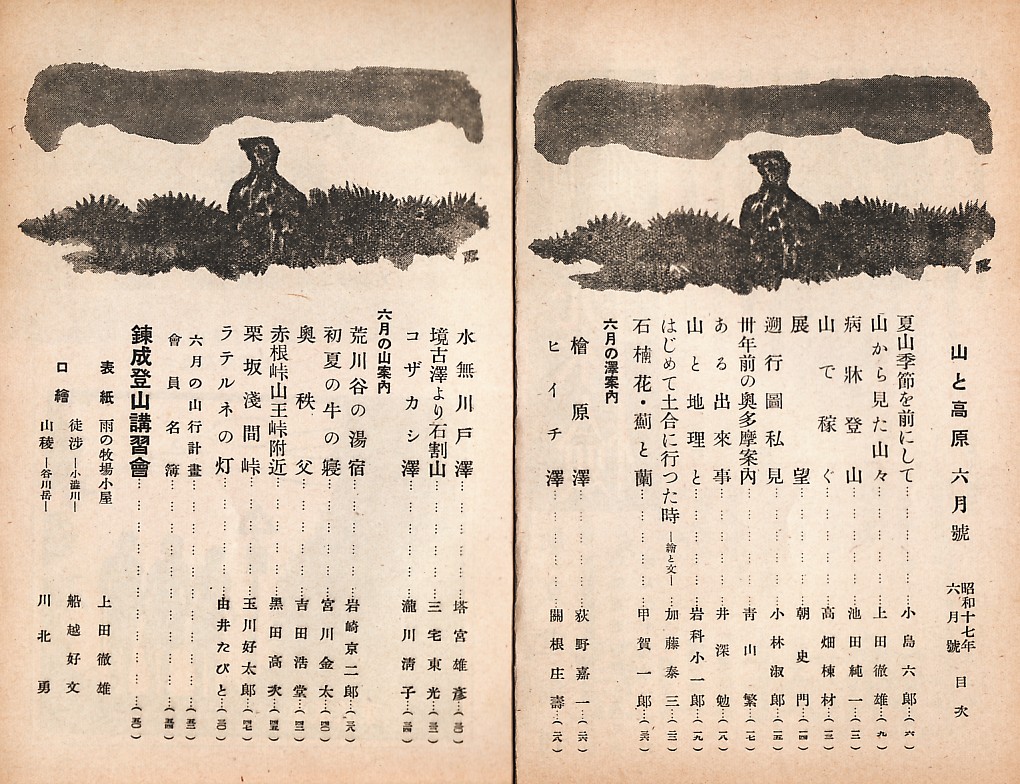 山と高原 六月號
昭和十七年六月號 目次
夏山季節を前にして…………小島六郎…(六)
山から見た山々…………上田徹雄…(九)
病牀登山…………池田純一…(一二)
山で稼ぐ…………高畑棟材…(一三)
展望…………朝史門…(一四)
遡行圖私見…………小林淑郎…(一五)
卅年前の奥多摩案内…………青山繁…(一七)
ある出來事…………井深勉…(一八)
山と地理と…………岩科小一郎…(一九)
はじめて土合に行つた時―繪と文―…加藤泰三…(二三)
石楠花・薊と蘭…………甲賀一郎…(二六)
六月の澤案内
檜原澤…………荻野嘉一…(二六)
ヒイチ澤…………關根庄壽…(二八)
水無川戸澤…………塔宮雄彦…(三〇)
境古澤より石割山…………三宅東光…(三二)
コザカシ澤…………瀧川淸子…(三四)
六月の山案内
荒川谷の湯宿…………岩崎京二郎…(三八)
初夏の牛の寢…………宮川金太…(四〇)
奥秩父…………吉田浩堂…(四三)
赤根峠山王峠附近…………黑田高次…(四五)
栗坂淺間峠…………玉川好太郎…(四七)
ラテルネの灯…………由井たびと…(三〇)
六月の山行計畫…………(五二)
會員名簿…………(五四)
錬成登山講習會…………(五〇)
表紙 雨の牧場小屋 上田徹雄
口繪 徒渉―小澁川― 船越好文
山稜―谷川岳― 川北勇